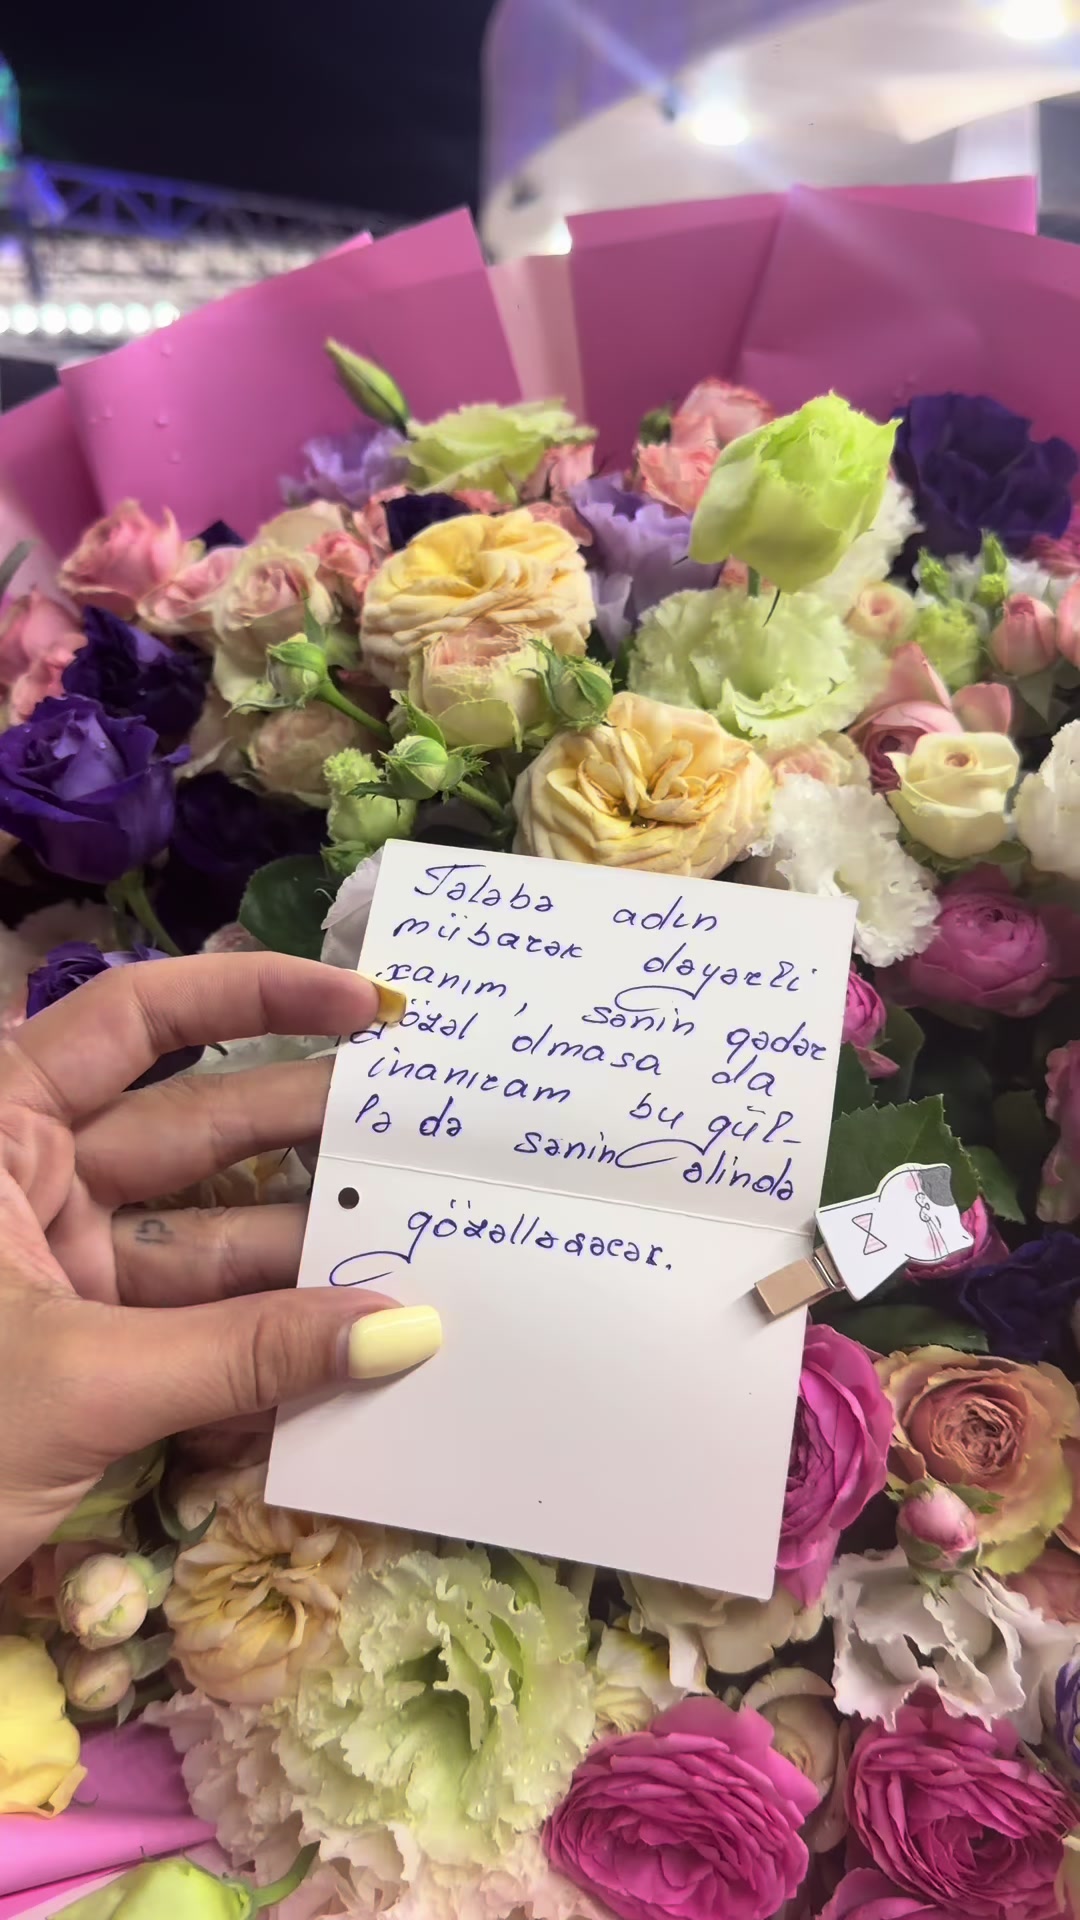 Tələbə adın
mübarək dəyərli
xanım, sənin qədər
gözəl olmasa da
inanıram bu gül-
lə də sənin əlində
gözəlləşəcək.